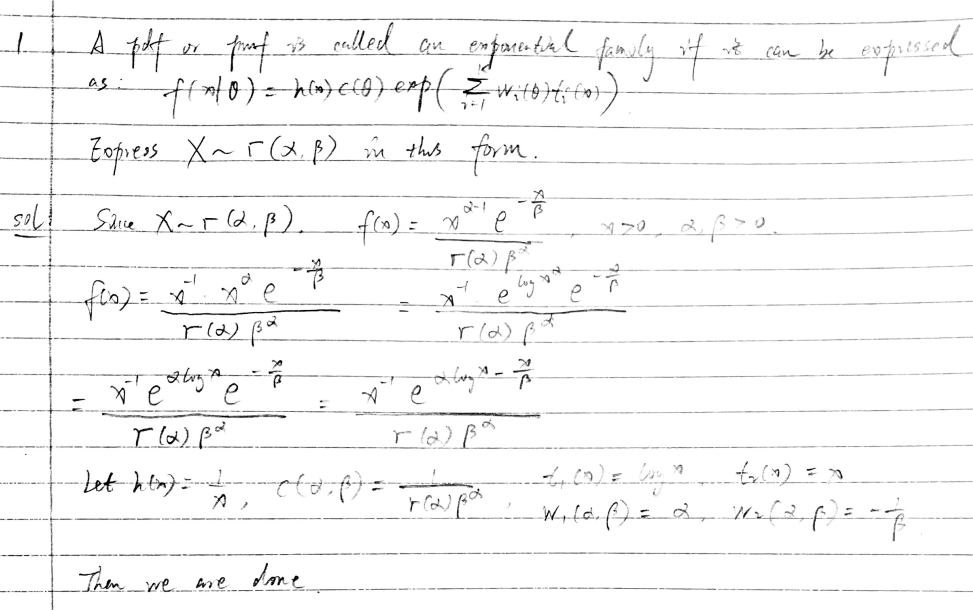 1. A pdf or pmf is called an exponential family if it can be expressed
as: f(x|θ) = h(x) c(θ) exp( Σ_{i=1}^{k} w_i(θ) t_i(x) )
Express X ~ Γ(α, β) in this form.
sol: Since X ~ Γ(α, β), f(x) = \frac{x^{α-1} e^{-\frac{x}{β}}}{Γ(α) β^α}, x>0, α, β>0.
f(x) = \frac{x^{-1} · x^α e^{-\frac{x}{β}}}{Γ(α) β^α} = \frac{x^{-1} e^{log x^α} e^{-\frac{x}{β}}}{Γ(α) β^α}
= \frac{x^{-1} e^{α log x} e^{-\frac{x}{β}}}{Γ(α) β^α} = \frac{x^{-1} e^{α log x - \frac{x}{β}}}{Γ(α) β^α}
Let h(x) = \frac{1}{x}, c(α, β) = \frac{1}{Γ(α) β^α}, t_1(x) = log x, t_2(x) = x
w_1(α, β) = α, w_2(α, β) = -\frac{1}{β}
Then we are done